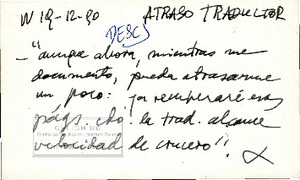 W 19-12-90 ATRASO TRADUCTOR
DESC
– "aunque ahora, mientras me
documento, pueda atrasarme
un poco: ya recuperaré esas
págs. cdo. la trad. alcance
velocidad de crucero".